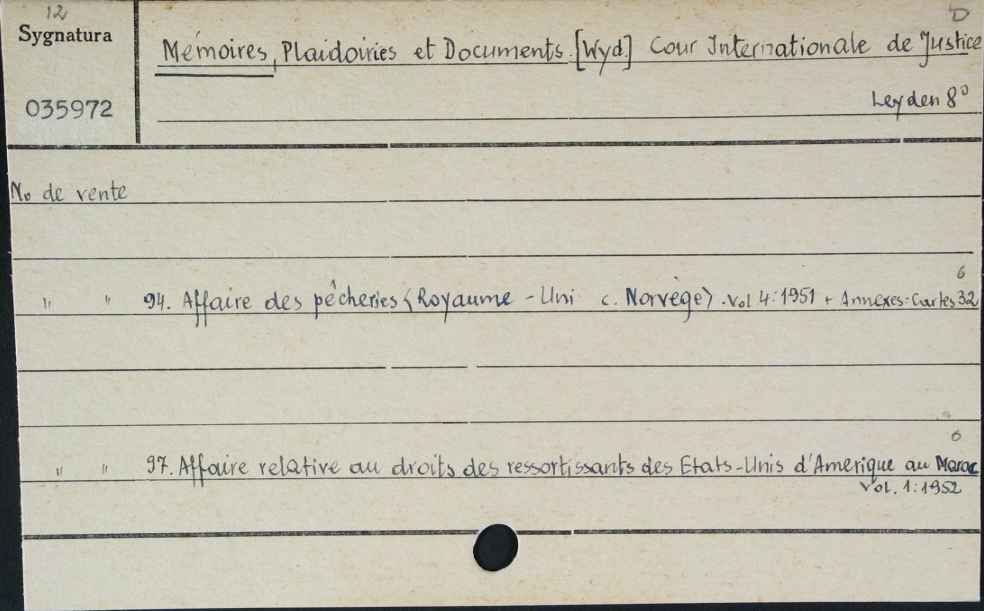 12
D
Sygnatura
Mémoires, Plaidoiries et Documents. [Wyd.] Cour Internationale de Justice
035972
Leyden 8°
No de vente
6
" " 94. Affaire des pêcheries (Royaume - Uni c. Norvège). vol 4: 1951 + Annexes-Cartes 32
6
" " 97. Affaire relative au droits des ressortissants des Etats-Unis d'Amerique au Maroc
Vol. 1: 1952